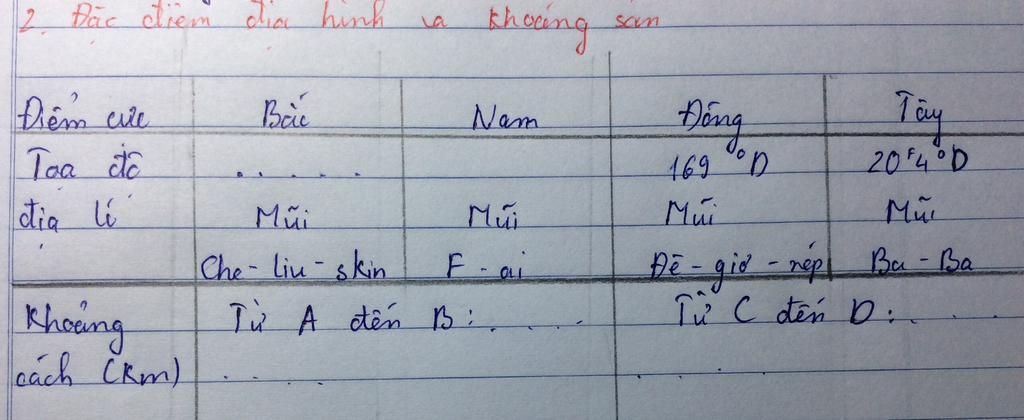 2. Đặc điểm địa hình và khoáng sản
Điểm cực Bắc Nam Đông Tây
Toạ độ ..... 169 °Đ 20'4°Đ
địa lí Mũi Mũi Mũi Mũi
Che-liu-skin F-ai Đê-giơ-nép Ba-Ba
Khoảng Từ A đến B: .... Từ C đến D: ....
cách (km) .... ....